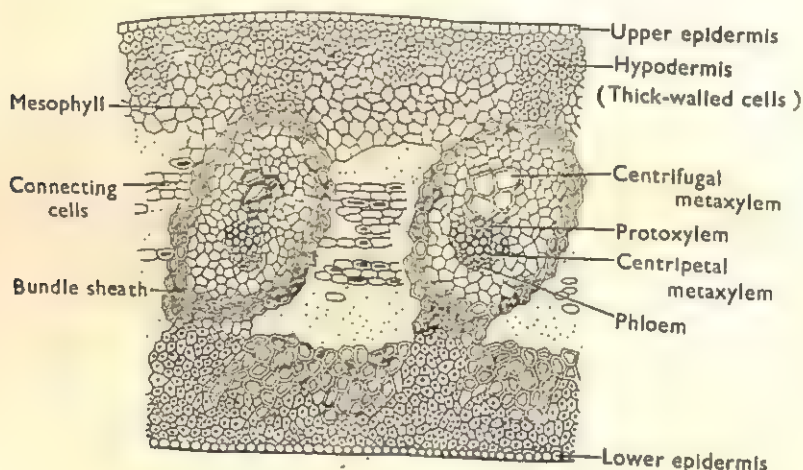 Upper epidermis
Hypodermis
(Thick-walled cells)
Mesophyll
Connecting
cells
Centrifugal
metaxylem
Protoxylem
Centripetal
metaxylem
Bundle sheath
Phloem
Lower epidermis